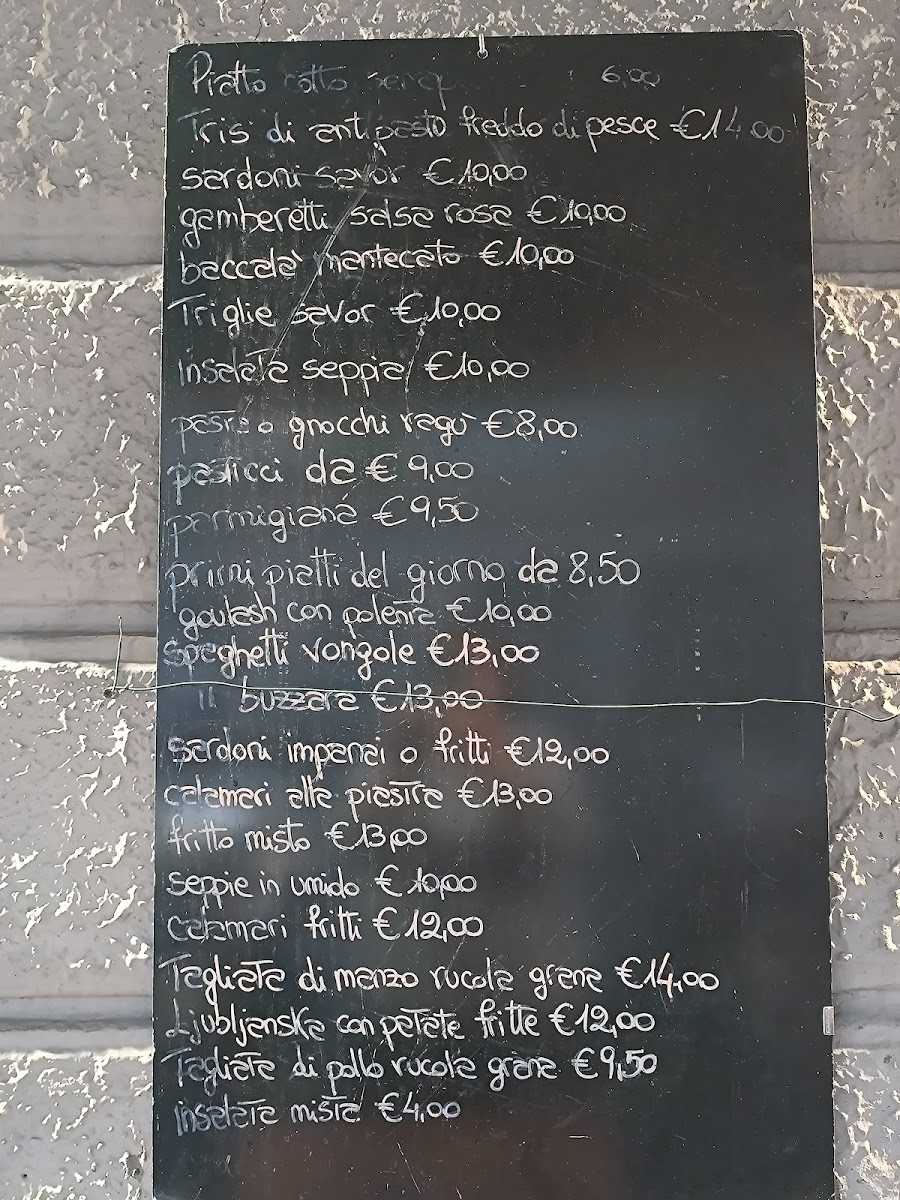 Piatto cotto 6,00
Tris di antipasto freddo di pesce €14,00
sardoni savor €10,00
gamberetti salsa rosa €10,00
baccala' mantecato €10,00
Triglie savor €10,00
insalata seppia €10,00
pasta o gnocchi ragù €8,00
pasticci da € 9,00
parmigiana €9,50
primi piatti del giorno da 8,50
goulash con polenta €10,00
spaghetti vongole €13,00
11 buzzara €13,00
sardoni impanai o fritti €12,00
calamari alla piastra €13,00
fritto misto €13,00
seppie in umido €10,00
calamari fritti €12,00
Tagliata di manzo rucola grana €14,00
Ljubljanska con patate fritte €12,00
Tagliata di pollo rucola grana €9,50
insalata mista €4,00